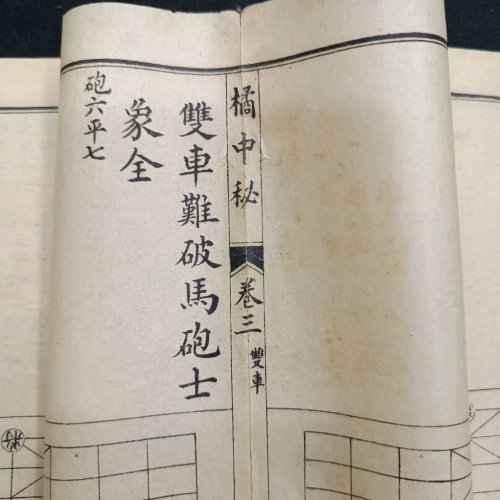 橘中秘
卷三
雙車
雙車難破馬砲士
象全
砲六平七
將